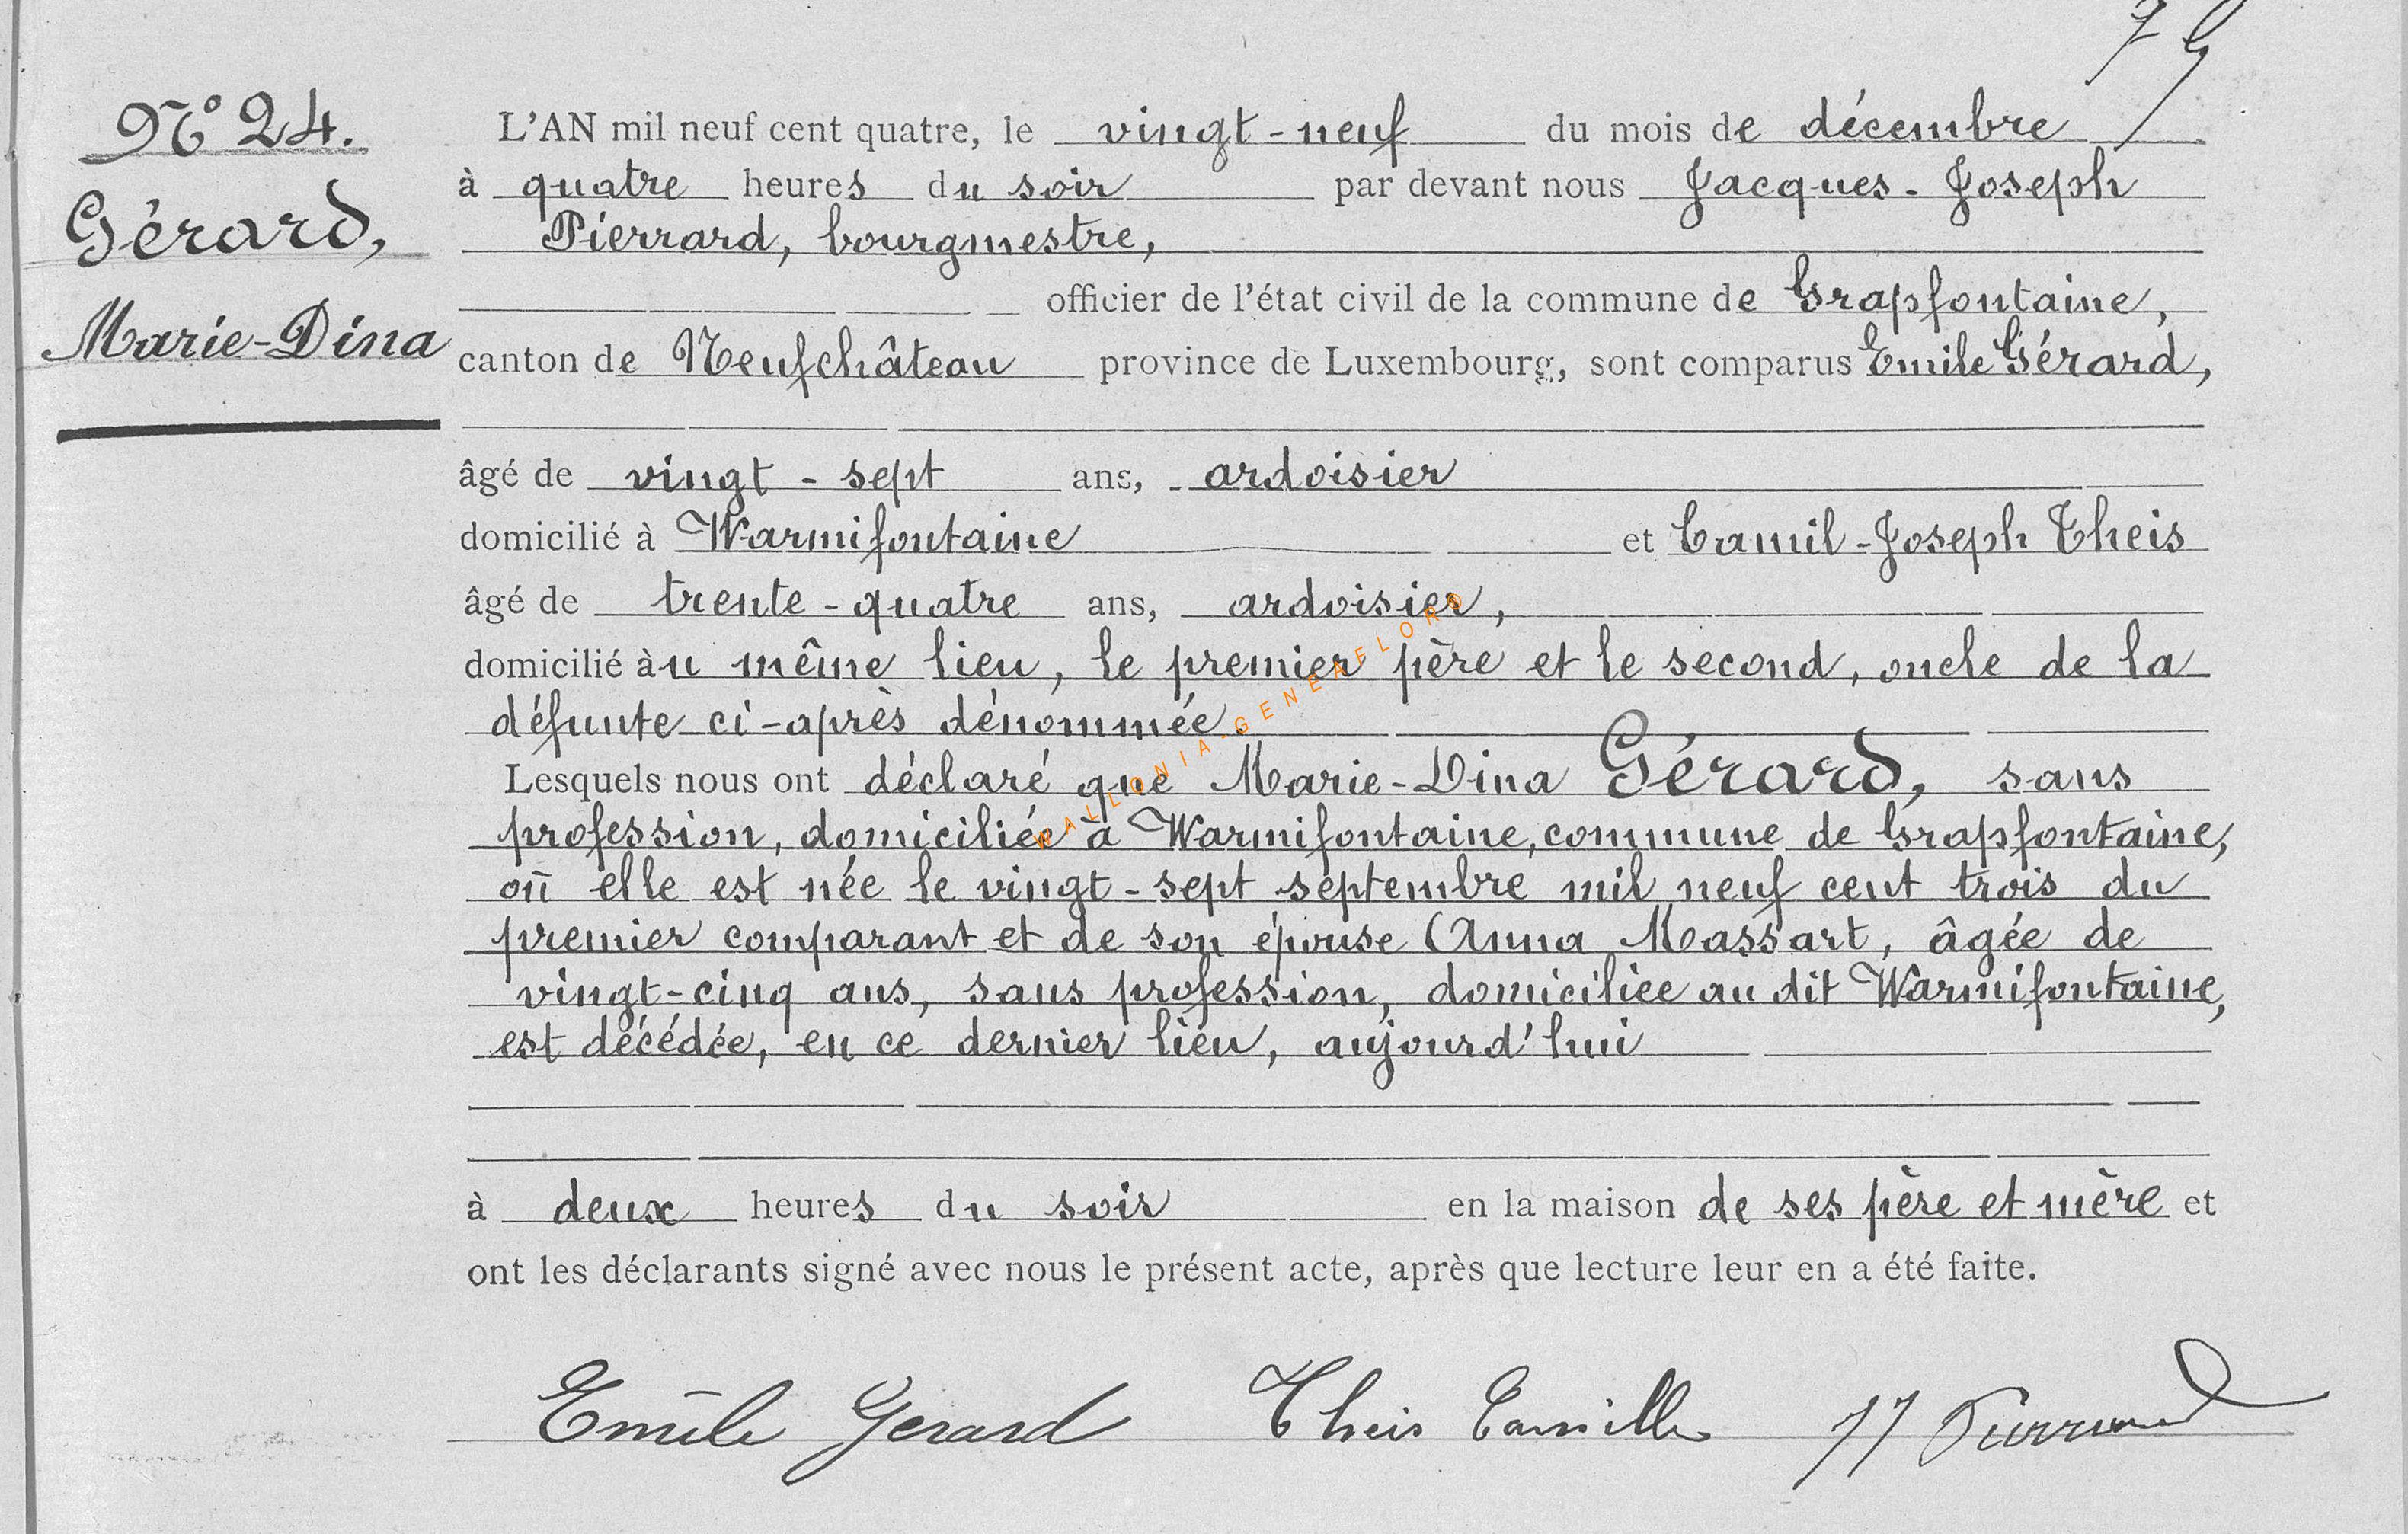 N° 24.
Gérard,
Marie-Dina
L'AN mil neuf cent quatre, le vingt-neuf du mois de décembre
à quatre heures du soir par devant nous Jacques-Joseph
Pierrard, bourgmestre,
officier de l'état civil de la commune de Grapfontaine,
canton de Neufchâteau province de Luxembourg, sont comparus Emile Gérard,
âgé de vingt-sept ans, ardoisier
domicilié à Warmifontaine et Camil-Joseph Theis
âgé de trente-quatre ans, ardoisier,
domicilié àu même lieu, le premier père et le second, oncle de la
défunte ci-après dénommée
Lesquels nous ont déclaré que Marie-Dina Gérard, sans
profession, domiciliée à Warmifontaine, commune de Grapfontaine,
où elle est née le vingt-sept septembre mil neuf cent trois du
premier comparant et de son épouse Anna Massart, âgée de
vingt-cinq ans, sans profession, domiciliée au dit Warmifontaine,
est décédée, en ce dernier lieu, aujourd'hui
à deux heures du soir en la maison de ses père et mère et
ont les déclarants signé avec nous le présent acte, après que lecture leur en a été faite.
Emile Gerard Theis Camille JJ Pierrard
WALLONIA-GENEAFLORD